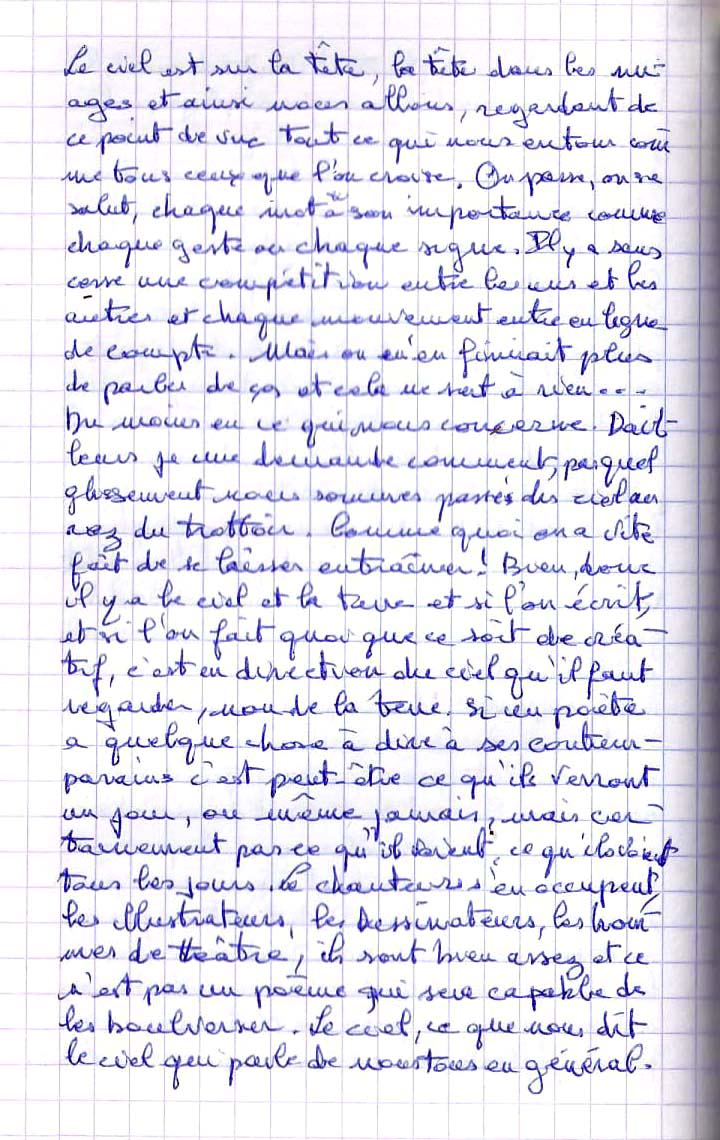 Le ciel est sur la tête, la tête dans les nu-
ages et ainsi nous allons, regardant de
ce point de vue tout ce qui nous entour com
me tous ceux que l'on croise. On passe, on se
salut, chaque mot a son importance comme
chaque geste ou chaque signe. Il y a sans
cesse une compétition entre les uns et les
autres et chaque mouvement entre en ligne
de compte. Mais on n'en finirait plus
de parler de ça et cela ne sert à rien...
Du moins en ce qui nous concerne. Dail-
leurs je me demande comment, par quel
glissement nous sommes passés du ciel au
raz du trottoir. Comme quoi on a vite
fait de se laisser entraîner! Bien, donc
il y a le ciel et la terre et si l'on écrit,
et si l'on fait quoi que ce soit de créa-
tif, c'est en direction du ciel qu'il faut
regarder, non de la terre. Si un poète
a quelque chose à dire à ses contem-
porains c'est peut-être ce qu'ils verront
un jour, ou même jamais, mais cer-
tainement pas ce qu'ils voient, ce qu'ils voient
tous les jours. Le chanteur s'en occupent,
les illustrateurs, les dessinateurs, les hom-
mes de théâtre, ils sont bien assez et ce
n'est pas un poème qui sera capable de
les boulverser. Le ciel, ce que nous dit
le ciel qui parle de nous tous en général.